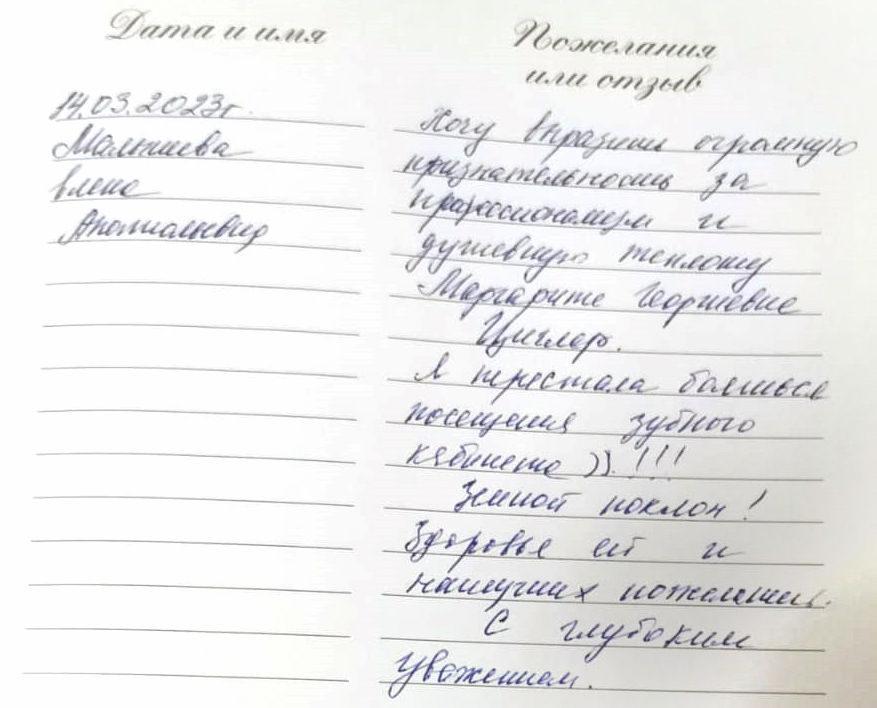 Дата и имя
14.03.2023г.
Малышева
Елена
Анатольевна
Пожелания
или отзыв
Хочу выразить огромную
признательность за
профессионализм и
душевную теплоту
Маргарите Георгиевне
Циглар.
Я перестала бояться
посещения зубного
кабинета )). !!!
Земной поклон!
Здоровья ей и
наилучших пожеланий.
С глубоким
уважением.